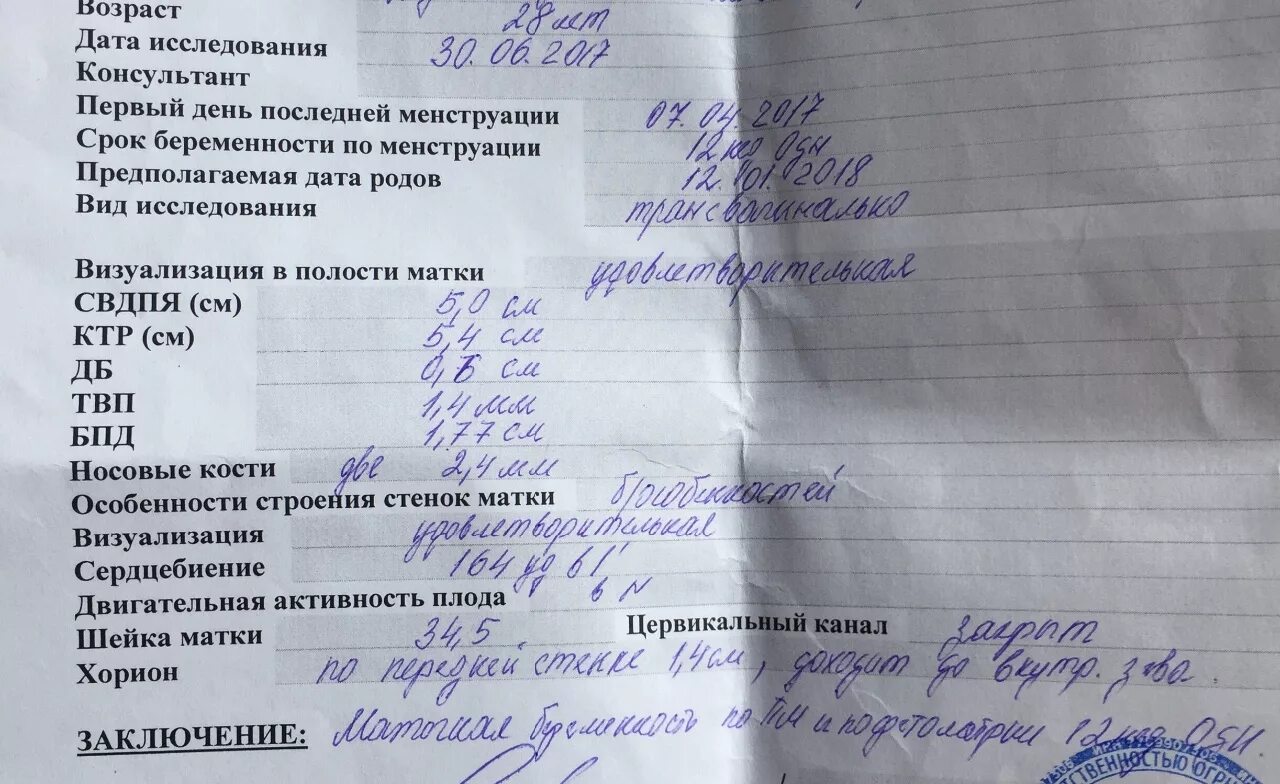 Возраст 28 лет
Дата исследования 30.06.2017
Консультант
Первый день последней менструации 07.04 2017
Срок беременности по менструации 12 нед 0 дн
Предполагаемая дата родов 12.01.2018
Вид исследования трансвагинально
Визуализация в полости матки удовлетворительная
СВДПЯ (см) 5,0 см
КТР (см) 5,4 см
ДБ см
ТВП 1,4 мм
БПД 1,77 см
Носовые кости две 2,4 мм
Особенности строения стенок матки б/особенностей
Визуализация удовлетворительная
Сердцебиение 164 уд в 1'
Двигательная активность плода в N
Шейка матки 34,5 Цервикальный канал закрыт
Хорион по передней стенке 1,4 см, доходит до внутр. зева.
ЗАКЛЮЧЕНИЕ: Маточная беременность по ПМ и 12 нед 0 дн
ТВЕННОСТЬЮ